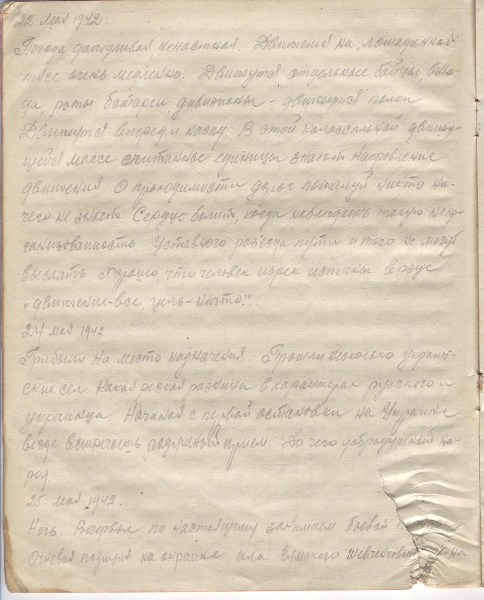 22 мая 1942.
Погода дождливая ненастная. Движемся на лошадиной
тяге очень медленно. Движутся отдельные бойцы, взво-
да роты батареи, дивизионы – движутся полки
Движутся вперед и назад. В этой колоссальной движу-
щейся массе считанные единицы знают направление
движения. О проходимости дорог пожалуй никто ни-
чего не знает. Сердце болит, когда наблюдаешь такую неор-
ганизованность. Уставного разъезда пути и того не могут
выслать. Хорошо, что человек изрек истину вроде
"движение – все, цель – ничто"!..
24 мая 1942
Прибыли на место назначения. Прошли несколько украин-
ских сел. Какая резкая разница в характерах русского и
украинца. Начиная с первой остановки на Украине
везде встречаешь радушный прием. До чего добродушный на-
род
25 мая 1942.
Ночь. Впервые по настоящему занимаем боевой
Огневая позиция на окраине села